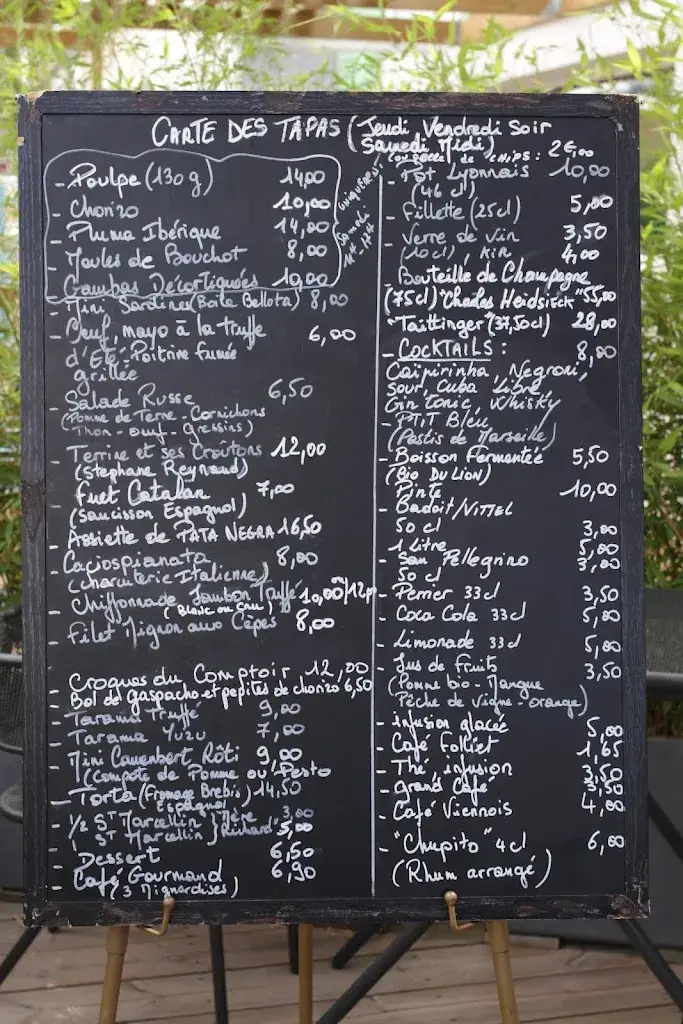 CARTE DES TAPAS (Jeudi Vendredi Soir
Samedi Midi)
- Poulpe (130 g) 14,00
- Chorizo 10,00
- Pluma Ibérique 14,00
- Moules de Bouchot 8,00
- Gambas Décortiquées 10,00
uniquement
Samedi
- Mini Sardines (Boite Bellota) 8,00
- Oeuf, mayo à la truffe 6,00
d'Eté - Poitrine fumée
grillée
- Salade Russe 6,50
(Pomme de Terre - Cornichons
Thon - oeuf - gressins)
- Terrine et ses Croûtons 12,00
(Stephane Reynaud)
- Fuet Catalan 7,00
(Saucisson Espagnol)
- Assiette de PATA NEGRA 16,50
- Caciospianata 8,00
(charcuterie Italienne)
- Chiffonnade Jambon Truffé 10,00
(Blanc ou Cru)
- Filet Mignon aux Cèpes 8,00
- Croques du Comptoir 12,00
- Bol de gaspacho et pepites de chorizo 6,50
- Tarama Truffé 9,00
- Tarama Yuzu 7,00
- Mini Camembert Rôti 9,00
(Compote de Pomme ou Pesto
- Torta (Fromage Brebis) 14,50
Espagnol
- 1/2 St Marcellin } Mère 3,00
- St Marcellin } Richard" 5,00
- Dessert 6,50
- Café Gourmand 6,90
(3 Mignardises)
de CHIPS : 2€,00
- Pot Lyonnais 10,00
(46 cl)
- Fillette (25cl) 5,00
- Verre de Vin 3,50
(10cl), KIR 4,00
- Bouteille de Champagne
(75cl) "Charles Heidsieck" 55,00
"Taittinger (37,50cl) 28,00
- COCKTAILS : 8,00
Caipirinha, Negroni,
Sour, Cuba Libre
Gin Tonic, Whisky
- PTIT BLEU
(Pastis de Marseille)
- Boisson Fermentée 5,50
(BIO DU LION)
Pinte 10,00
- Badoit/VITTEL
50 cl 3,00
1 Litre 5,00
- San Pellegrino 3,00
50 cl
- Perrier 33cl 3,50
- Coca Cola 33cl 5,00
- Limonade 33cl 5,00
- Jus de Fruits 3,50
(Pomme bio - Mangue
Pêche de Vigne - orange)
- infusion glacée 5,00
- Café Folliet 1,65
- Thé, infusion 3,50
- grand Café 3,50
- Café Viennois 4,00
- "Chupito" 4cl 6,00
(Rhum arrangé)